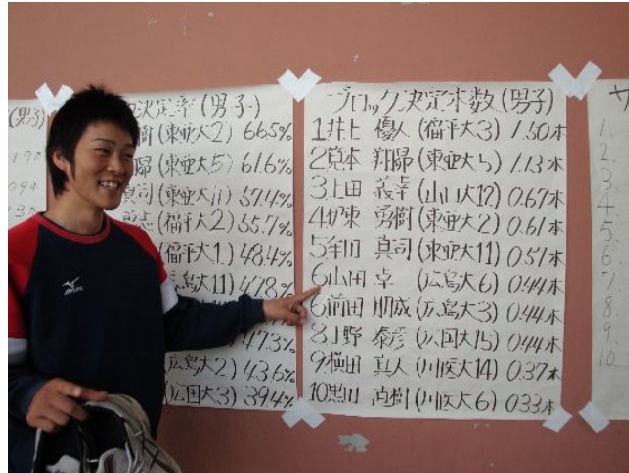 男子)
決定率(男子)
樹(東亜大2) 66.5%
陽(東亜大5) 61.6%
真司(東亜大11) 57.4%
志(福平大2) 55.7%
(福平大1) 48.4%
広島大11) 47.8%
47.3%
広島大2) 43.6%
(広国大3) 39.4%
ブロック決定本数(男子)
1 井上 優人(福平大3) 1.50本
2 筧本 翔陽(東亜大5) 1.13本
3 上田 義幸(山口大12) 0.67本
4 伊東 勇樹(東亜大2) 0.61本
5 牟田 真司(東亜大11) 0.51本
6 山田 卓 (広島大6) 0.44本
6 前田 朋成(広島大3) 0.44本
8 小野 泰彦(広国大15) 0.44本
9 横田 真人(川医大14) 0.37本
10 黒川 直樹(川医大6) 0.33本
サ
1.
2.
3.
4.
5.
6.
7.
8.
9.
10.